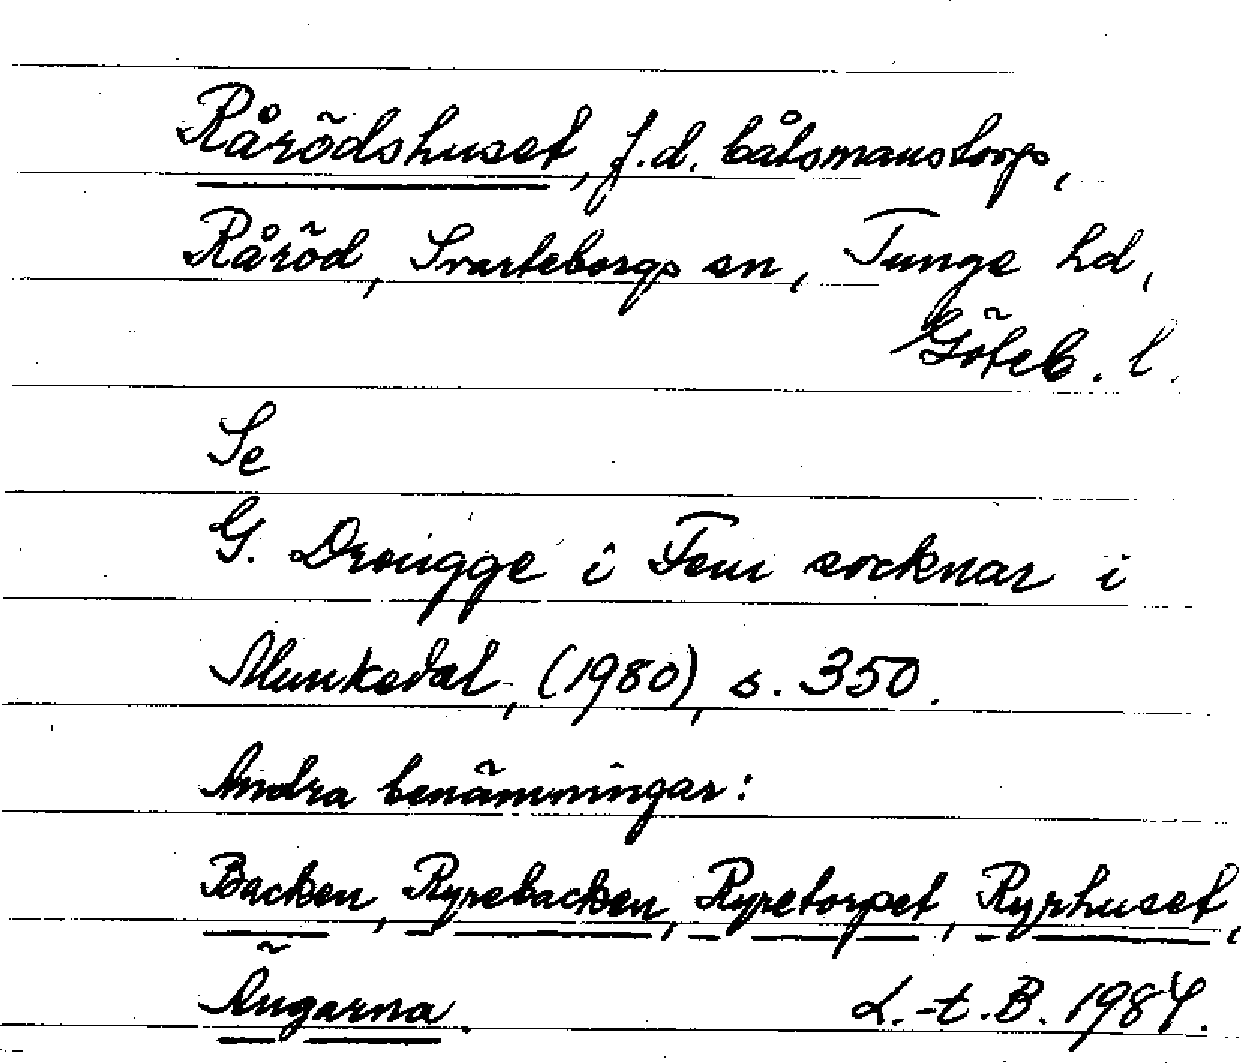 Rårödshuset, f.d. båtsmanstorp,
Råröd, Svarteborgs sn, Tunge hd,
Göteb. l.
Se
G. Drougge i Fem socknar i
Munkedal, (1980), s. 350.
Andra benämningar:
Backen, Ryrebacken, Ryretorpet, Ryrhuset,
Ängarna. L.-t. B. 1984.